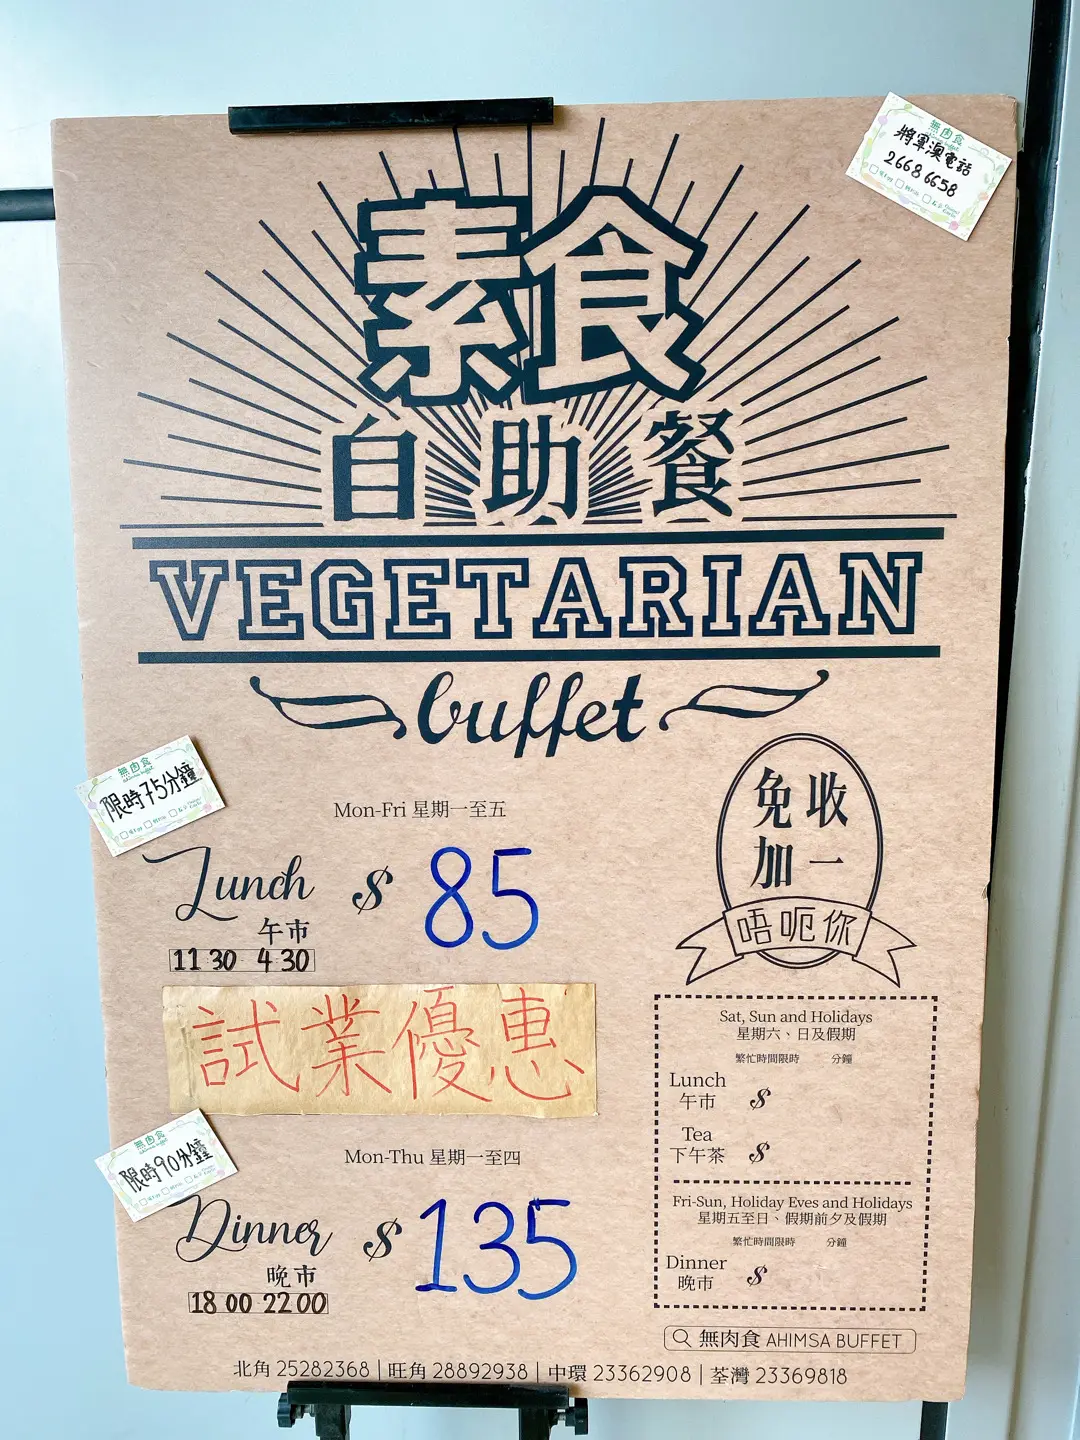 無肉食
將軍澳電話
2668 6658
素食
自助餐
VEGETARIAN
buffet
無肉食
ahimsa buffet
限時75分鐘
Mon-Fri 星期一至五
Lunch $ 85
午市
11 30 4 30
免收
加一
唔呃你
試業優惠
無肉食
ahimsa buffet
限時90分鐘
Mon-Thu 星期一至四
Dinner $ 135
晚市
18 00 22 00
Sat, Sun and Holidays
星期六、日及假期
繁忙時間限時 分鐘
Lunch
午市 $
Tea
下午茶 $
Fri-Sun, Holiday Eves and Holidays
星期五至日、假期前夕及假期
繁忙時間限時 分鐘
Dinner
晚市 $
無肉食 AHIMSA BUFFET
北角 25282368 | 旺角 28892938 | 中環 23362908 | 荃灣 23369818